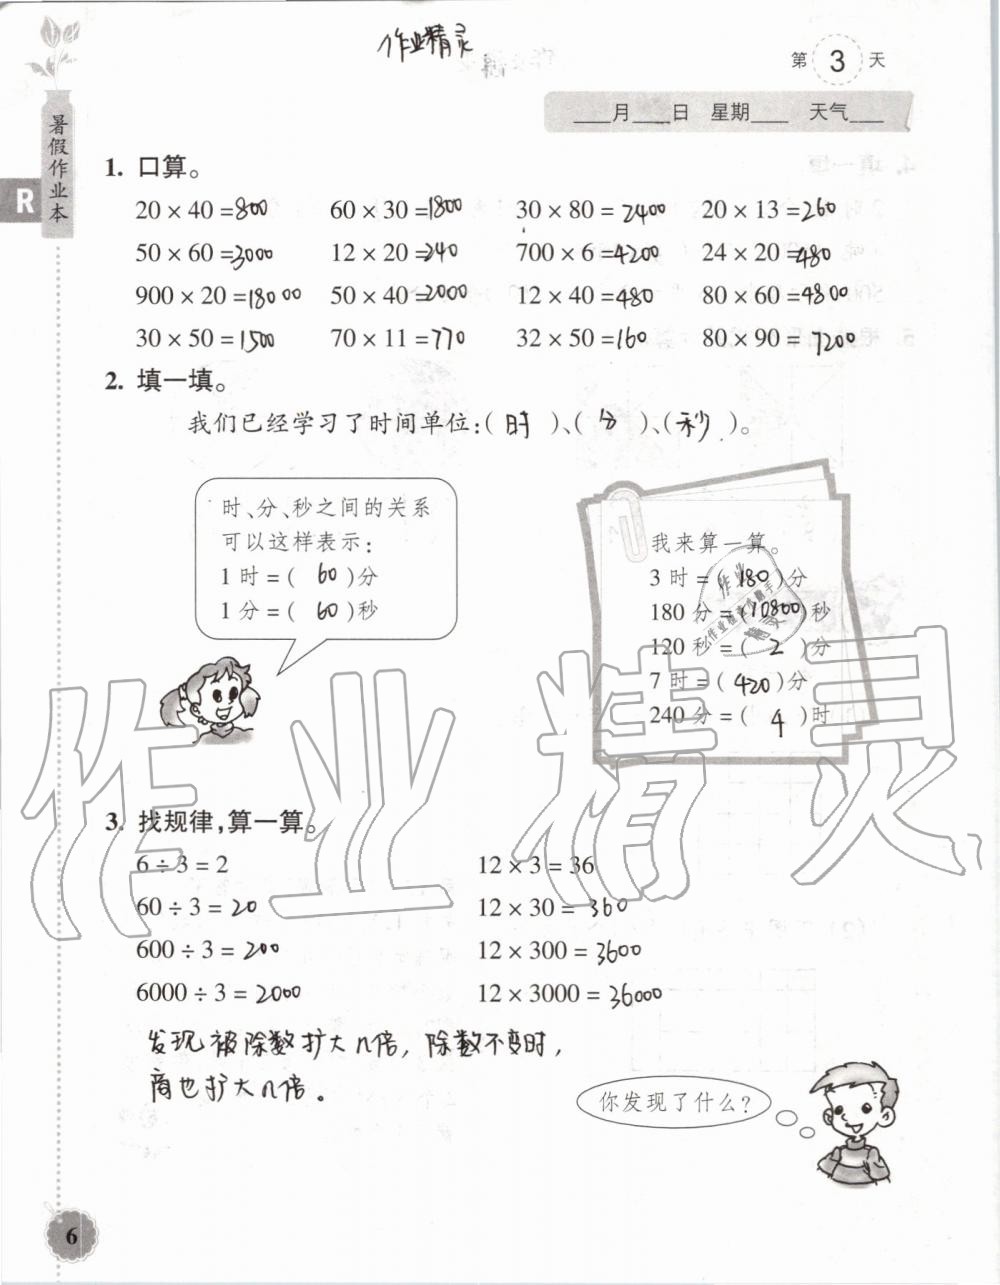 作业精灵
第 3 天
____月____日 星期____ 天气____
暑假作业本
R
1. 口算。
20 × 40 = 800 60 × 30 = 1800 30 × 80 = 2400 20 × 13 = 260
50 × 60 = 3000 12 × 20 = 240 700 × 6 = 4200 24 × 20 = 480
900 × 20 = 18000 50 × 40 = 2000 12 × 40 = 480 80 × 60 = 4800
30 × 50 = 1500 70 × 11 = 770 32 × 50 = 160 80 × 90 = 7200
2. 填一填。
我们已经学习了时间单位:( 时 )、( 分 )、( 秒 )。
时、分、秒之间的关系
可以这样表示:
1 时 = ( 60 )分
1 分 = ( 60 )秒
我来算一算。
3 时 = ( 180 )分
180 分 = ( 10800 )秒
120 秒 = ( 2 )分
7 时 = ( 420 )分
240 分 = ( 4 )时
作业精灵
3. 找规律,算一算。
6 ÷ 3 = 2 12 × 3 = 36
60 ÷ 3 = 20 12 × 30 = 360
600 ÷ 3 = 200 12 × 300 = 3600
6000 ÷ 3 = 2000 12 × 3000 = 36000
发现被除数扩大n倍,除数不变时,
商也扩大n倍。
你发现了什么?
6